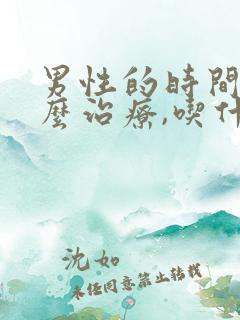 男性的時間
麼治療,喫什
沈如
未經同意禁止轉載